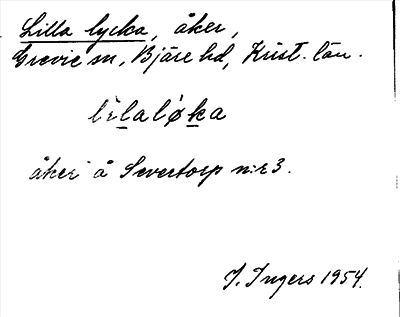 Lilla lycka, åker,
Grevie sn, Bjäre hd, Krist. län.
lìlaløka
åker å Severtorp n:r 3.
I. Ingers 1954.